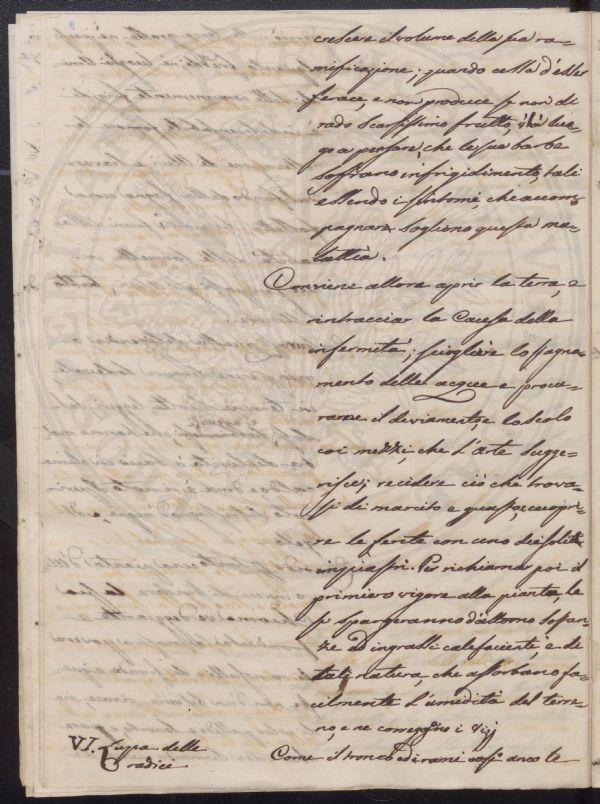 crescere il volume della sua ra-
mificazione; quando cessa d'esser
ferace e non produce se non di
rado scarsissimo frutto, v'hà luo-
go a pensare, che le sue barbe
soffrano infrigidimento, tali
essendo i sintomi, che accom-
pagnar sogliono questa ma-
lattia.
Conviene allora aprir la terra, e
rintracciar la causa della
infermità; sciogliere lo stagna-
mento delle acque e procu-
rarne il deviamento, e lo scolo
coi mezzi, che l'arte sugge-
risce; recidere ciò che trova-
si di marcito e guasto, ricopri-
re le ferite con uno dei soliti
inguastri. Per richiamar poi il
primiero vigore alla pianta, le
si spargeranno d'attorno sostan-
ze ed ingrassi calefacienti, e di
tal natura, che assorbano fa-
cilmente l'umidità del terre-
no, e ne correggano i vizj
VI. Lupa delle
radici
Come il tronco ed i rami così anco le